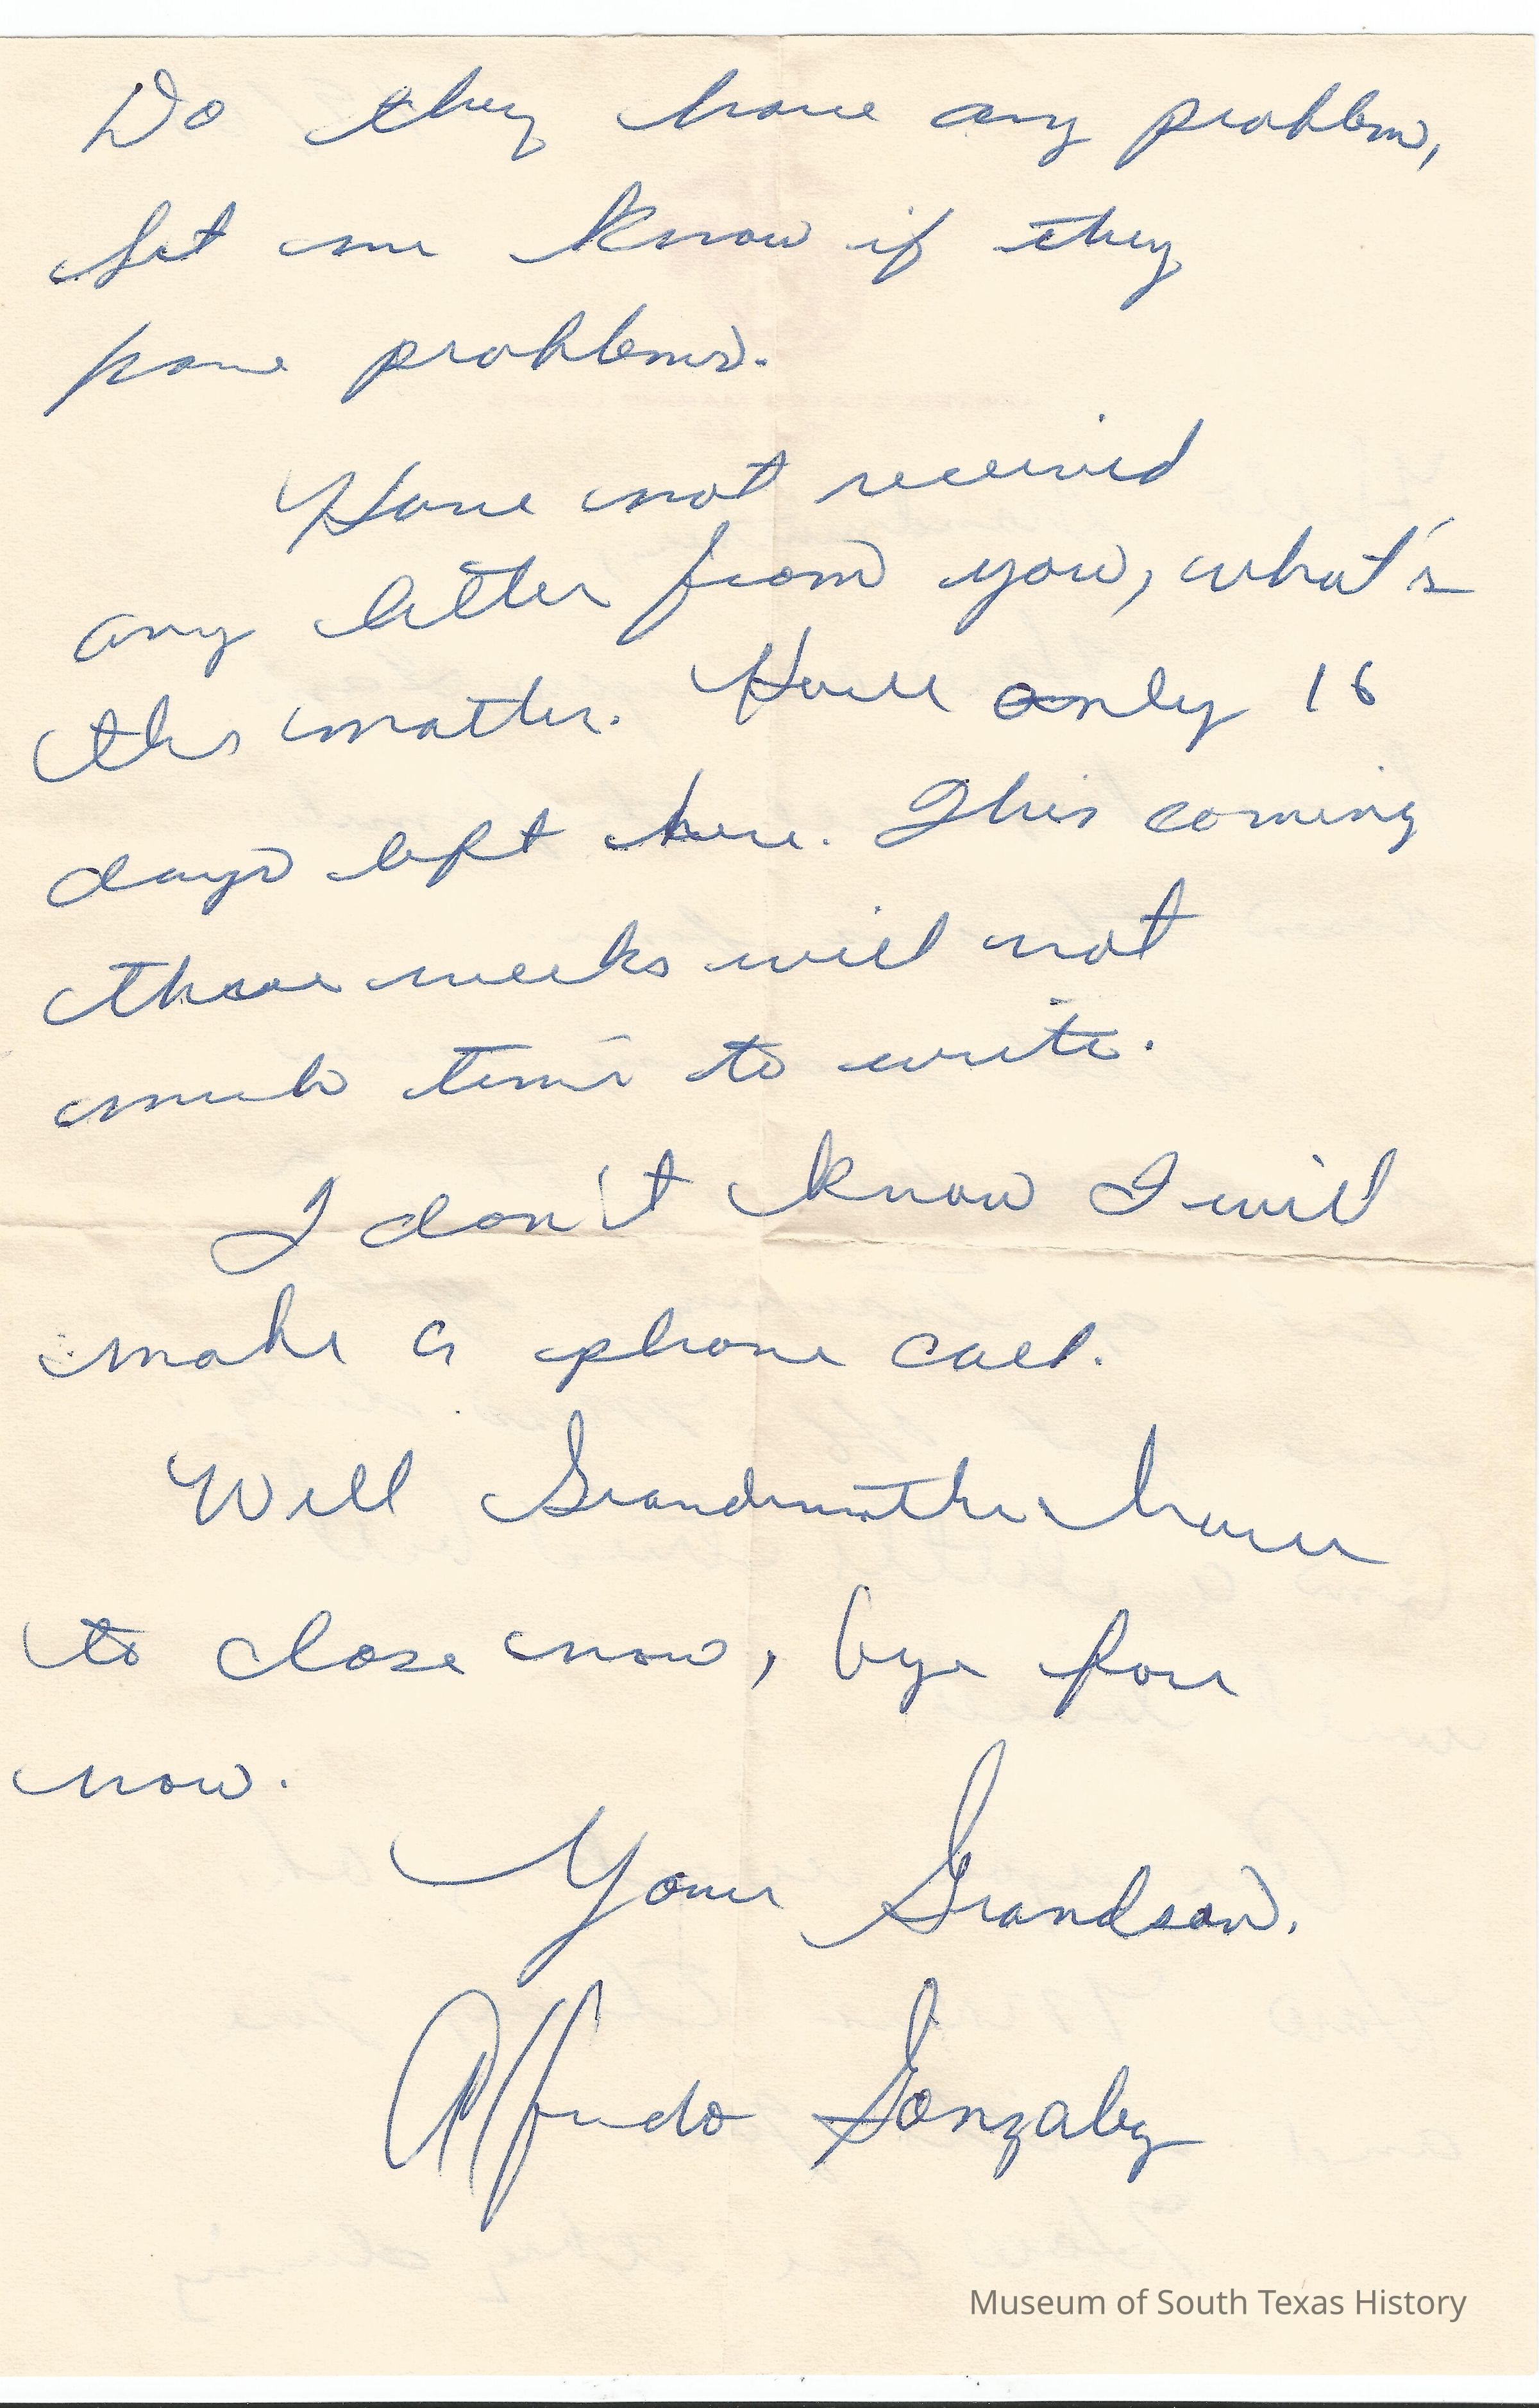 Do they have any problem,
Let me know if they
have problems.
Have not received
any letter from you, what's
the matter. Have only 16
days left here. This coming
three weeks will not
much time to write.
I don't know I will
make a phone call.
Well Grandmother have
to close now, bye for
now.
Your Grandson.
Alfredo Gonzalez
Museum of South Texas History